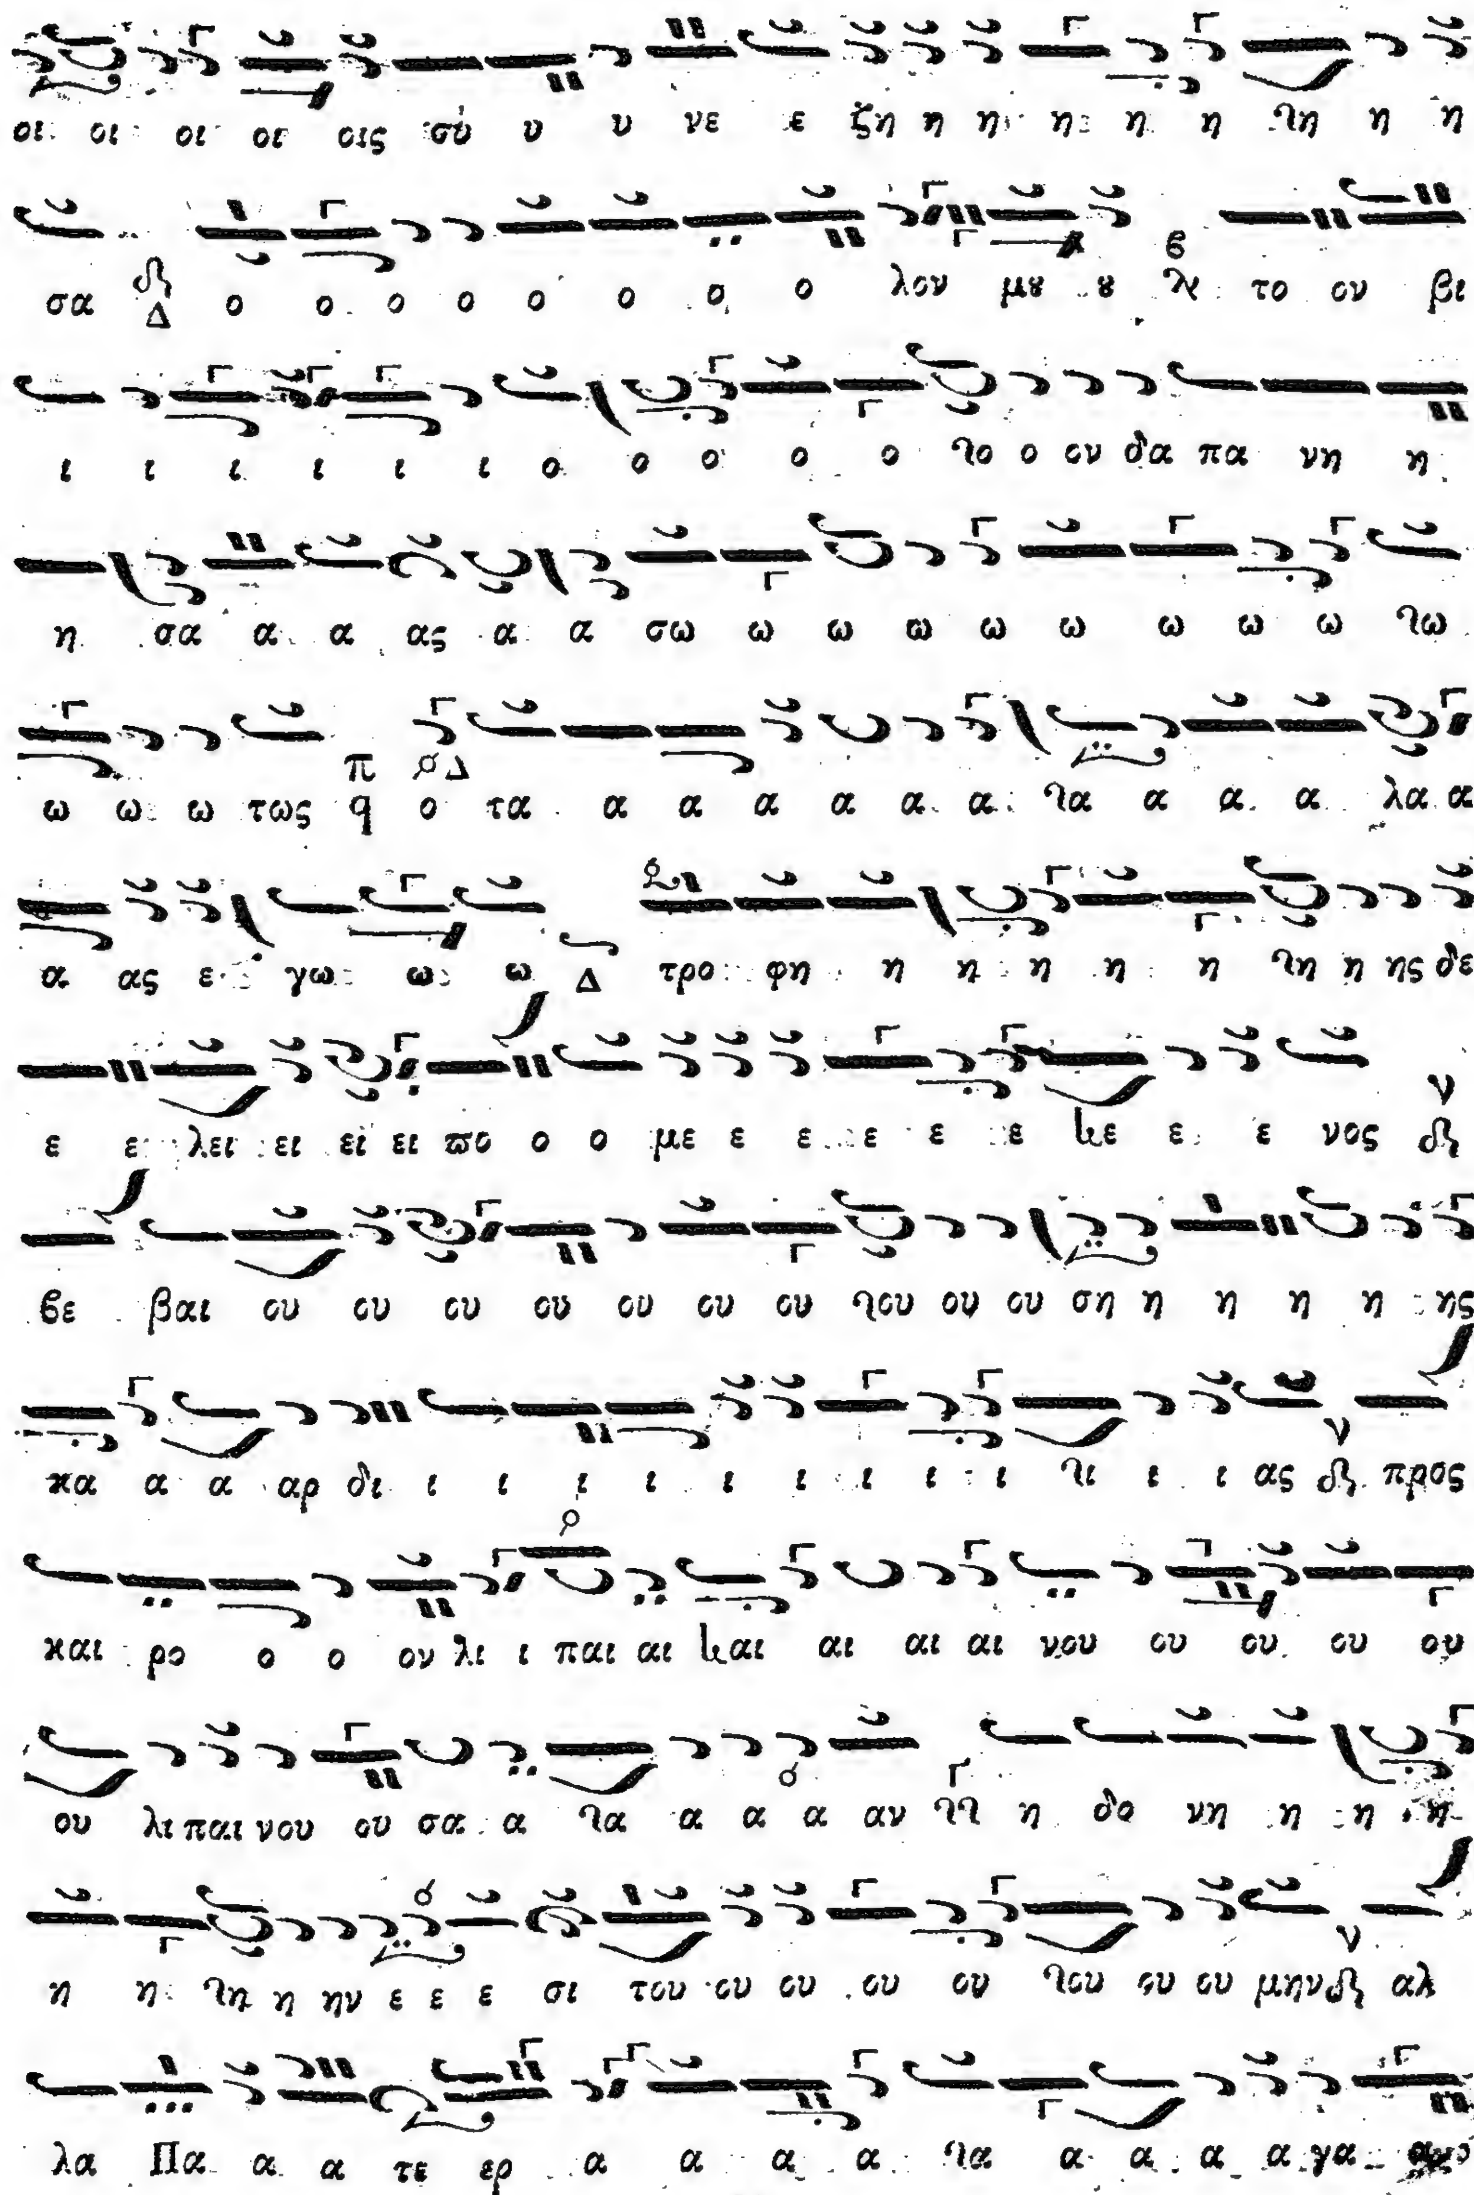 οι οι οι οι οις συ υ υ νε ε ζη η η η η η τη η η
σα Δ ο ο ο ο ο ο ο ο λον μȣ ȣ ϗ το ον βι
ι ι ι ι ι ι ο ο ο ο ο το ο ον δα πα νη η
η σα α α ας α α σω ω ω ω ω ω ω ω ω τω
ω ω ω τως q ο τα α α α α α α τα α α α λα α
α ας ε γω ω ω Δ τρο φη η η η η η τη η ης δε
ε ε λει ει ει ει πο ο ο με ε ε ε ε ε με ε ε νος
βε βαι ου ου ου ου ου ου ου του ου ου ση η η η η ης
κα α α αρ δι ι ι ι ι ι ι ι ι ι τι ι ι ας προς
και ρο ο ο ον λι ι παι αι και αι αι αι νου ου ου ου ου
ου λι παι νου ου σα α τα α α α αν η δο νη η η η
η η τη η ην ε ε ε σι του ου ου ου ου του ου ου μην αλ
λα Πα α α τε ερ α α α α τα α α α α γα